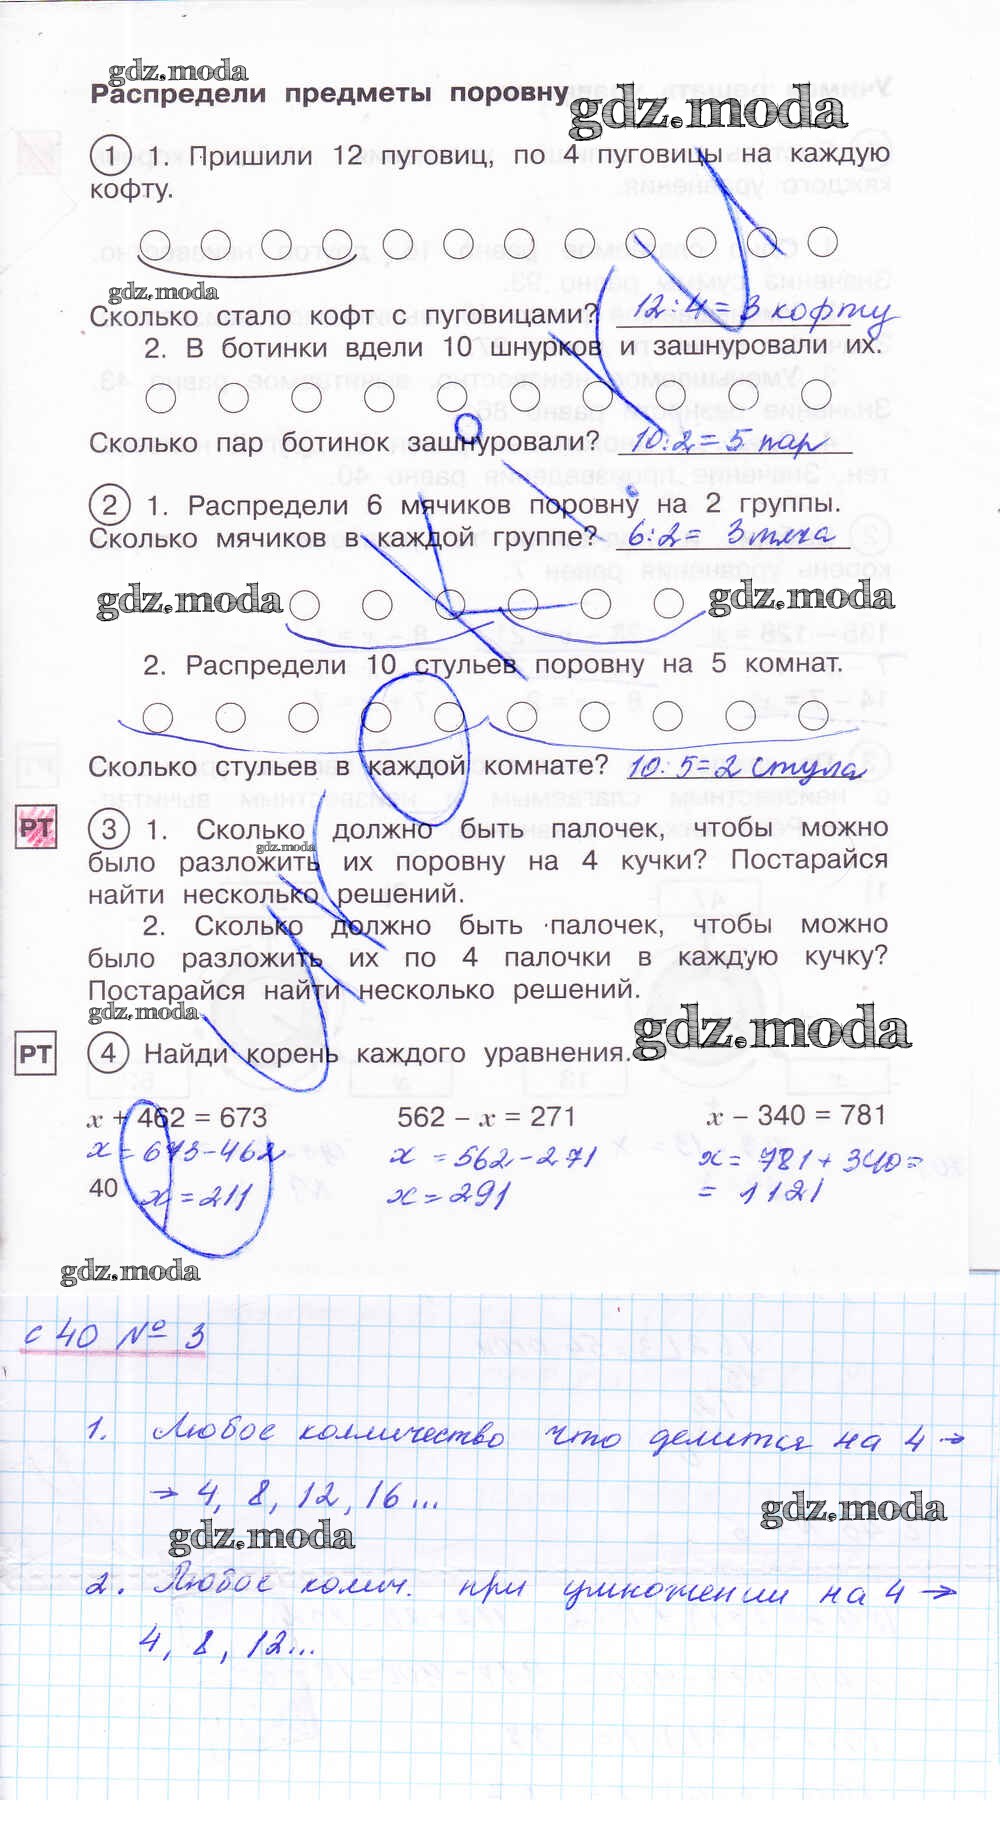 gdz.moda
Распредели предметы поровну
gdz.moda
1 1. Пришили 12 пуговиц, по 4 пуговицы на каждую
кофту.
gdz.moda
Сколько стало кофт с пуговицами? 12:4=3 кофту
2. В ботинки вдели 10 шнурков и зашнуровали их.
Сколько пар ботинок зашнуровали? 10:2=5 пар
2 1. Распредели 6 мячиков поровну на 2 группы.
Сколько мячиков в каждой группе? 6:2= 3 мяча
gdz.moda
gdz.moda
2. Распредели 10 стульев поровну на 5 комнат.
Сколько стульев в каждой комнате? 10:5=2 стула
РТ 3 1. Сколько должно быть палочек, чтобы можно
gdz.moda
было разложить их поровну на 4 кучки? Постарайся
найти несколько решений.
2. Сколько должно быть палочек, чтобы можно
было разложить их по 4 палочки в каждую кучку?
Постарайся найти несколько решений.
gdz.moda
gdz.moda
РТ 4 Найди корень каждого уравнения.
x + 462 = 673 562 – x = 271 x – 340 = 781
x = 673-462 x = 562-271 x = 781+340=
40 x = 211 x = 291 = 1121
gdz.moda
с 40 № 3
1. Любое колличество что делится на 4 →
→ 4, 8, 12, 16...
gdz.moda
gdz.moda
2. Любое колич. при умножении на 4 →
4, 8, 12...